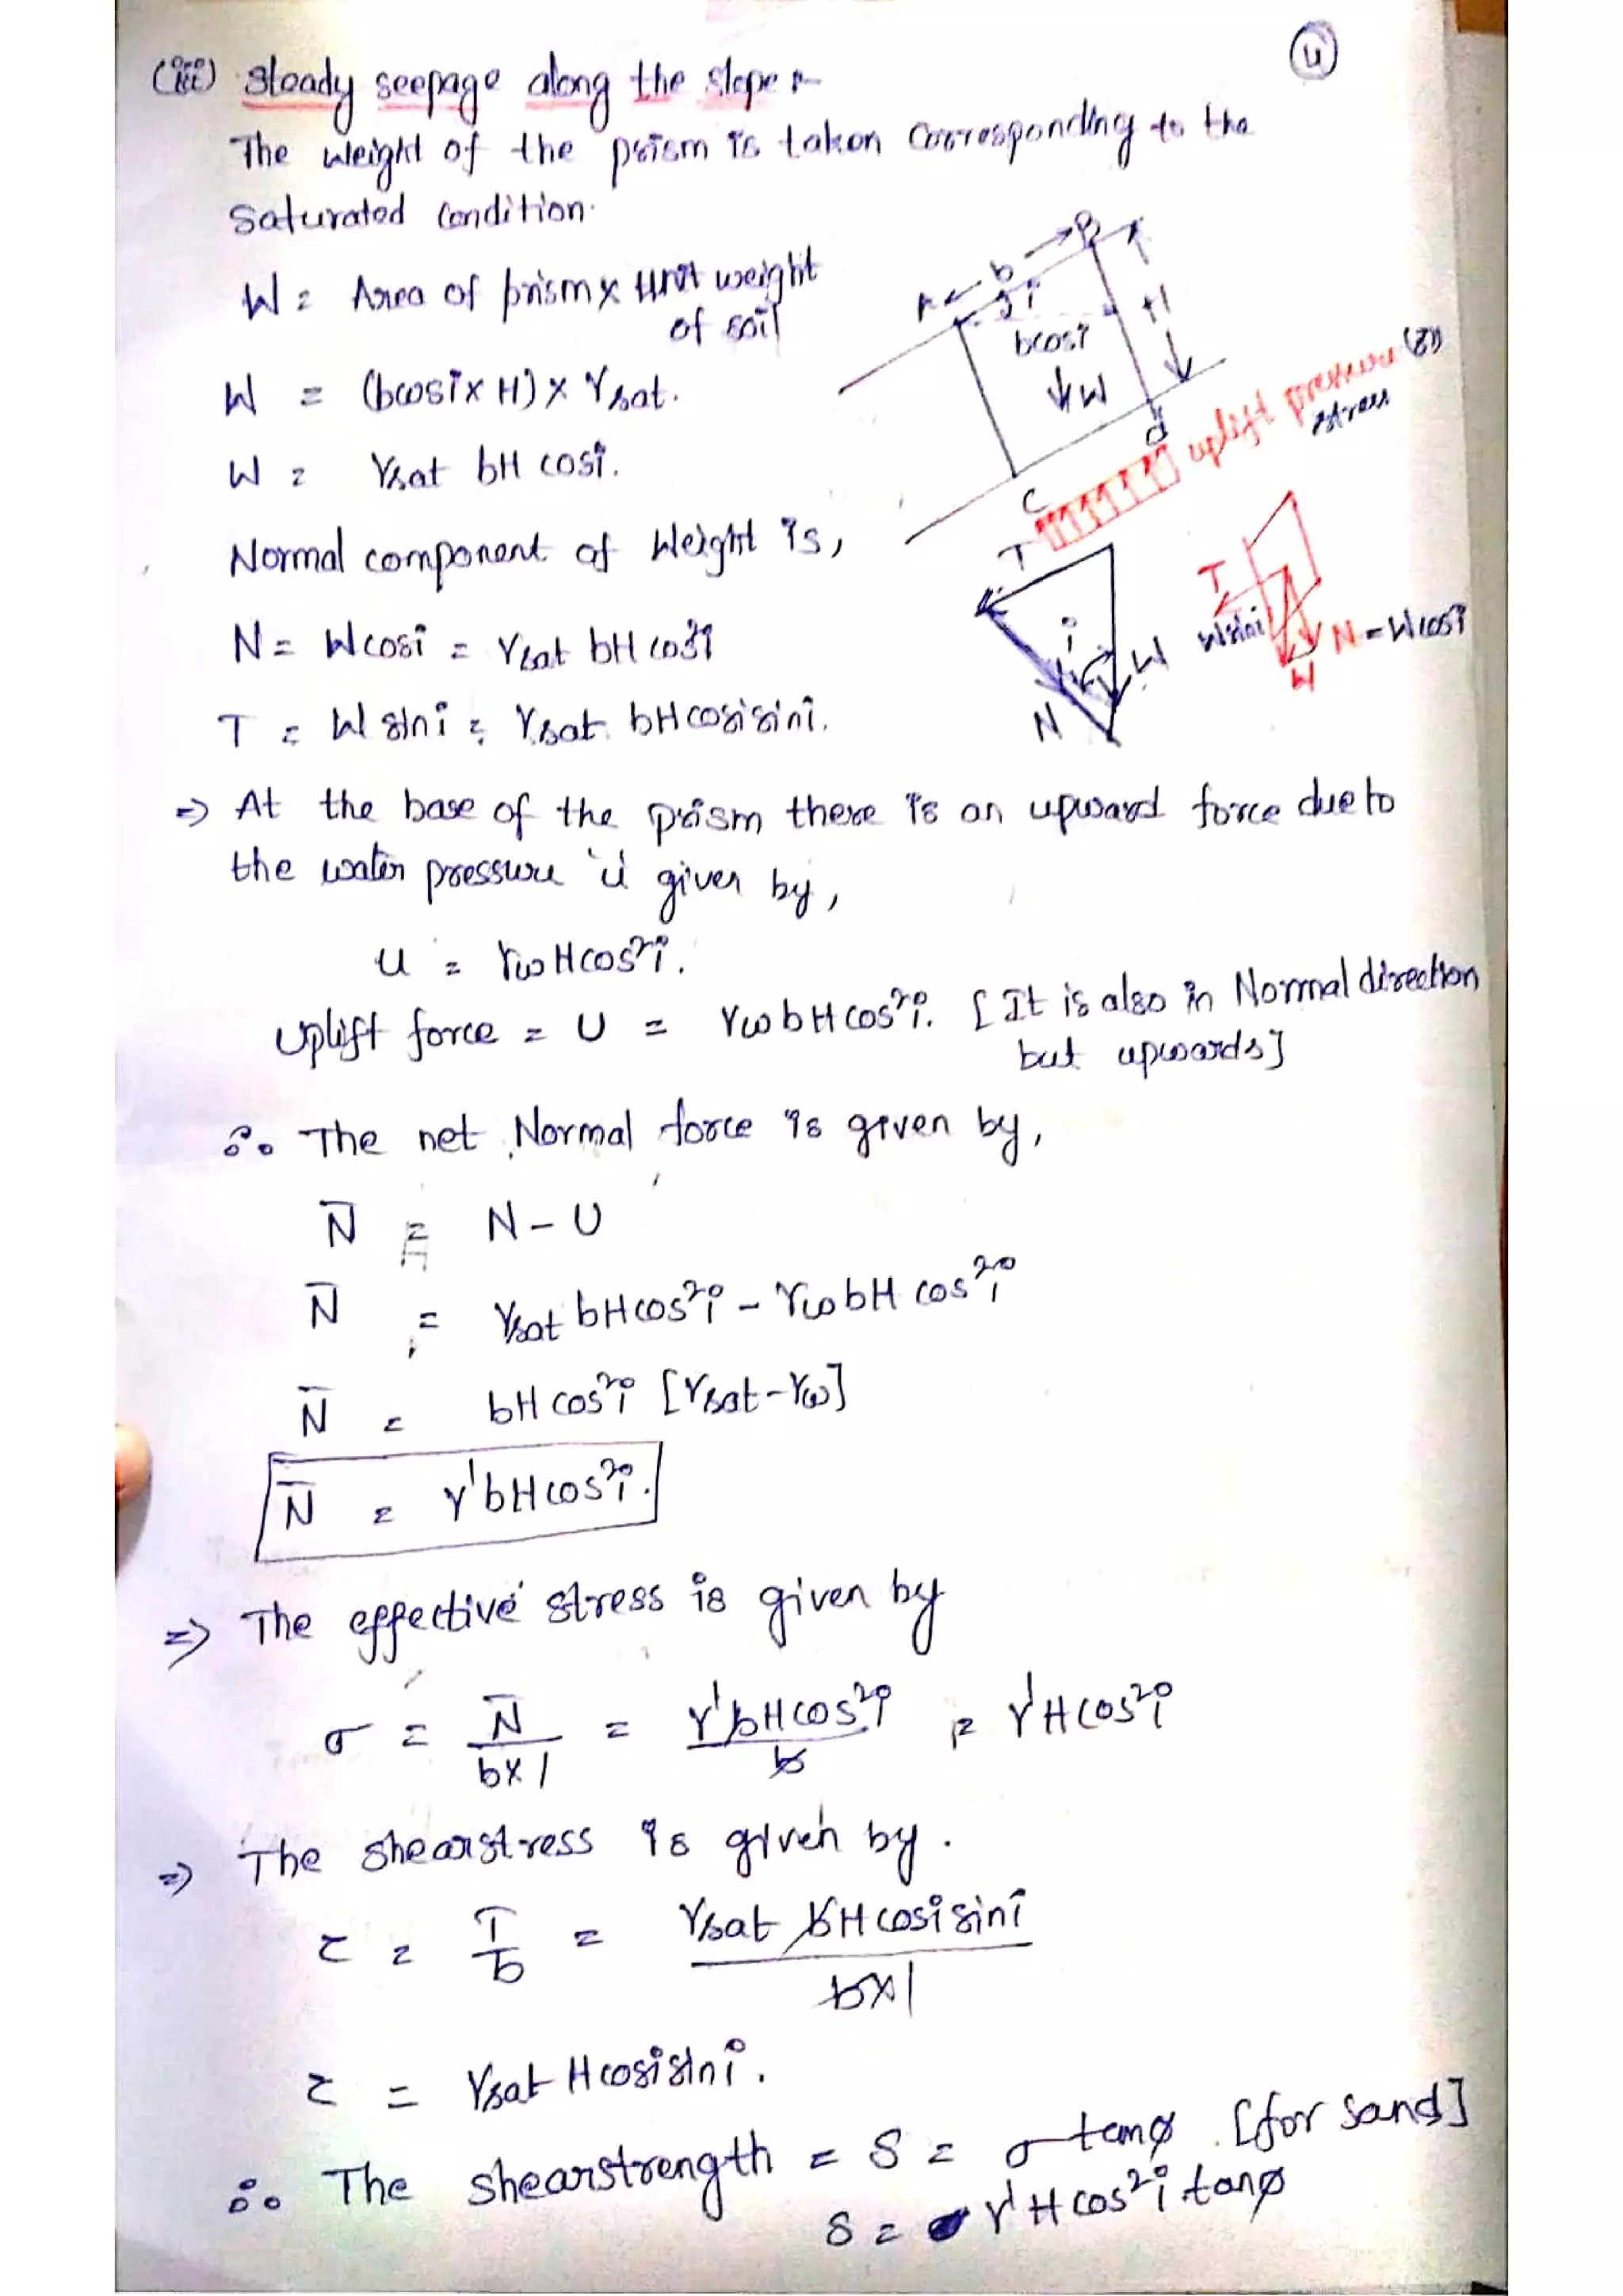 (iii) Steady seepage along the slope :-
4
The weight of the prism is taken corresponding to the
saturated condition.
W = Area of prism x Unit weight
of soil
W = (bcosi x H) x γsat.
W = γsat bH cosi.
Normal component of Weight is,
N = Wcosi = γsat bH cos²i
T = W sini = γsat bH cosi sini.
A b B
i
bcosi
H
↓W
C d
uplift pressure
stress
T
i
W
N
T
Wsini
N = Wcosi
W
⇒ At the base of the prism there is an upward force due to
the water pressure 'u' given by,
u = γw H cos²i.
Uplift force = U = γw bH cos²i. [It is also in Normal direction
but upwards]
∴ The net Normal force is given by,
N̄ = N - U
N̄ = γsat bH cos²i - γw bH cos²i
N̄ = bH cos²i [γsat - γw]
N̄ = γ' bH cos²i.
⇒ The effective stress is given by
σ = N̄ / b x 1 = γ' bH cos²i / b = γ' H cos²i
⇒ The shearstress is given by.
τ = T / b = γsat bH cosi sini / b x 1
τ = γsat H cosi sini.
∴ The shearstrength = S = σ tanø. [for sand]
S = γ' H cos²i tanø